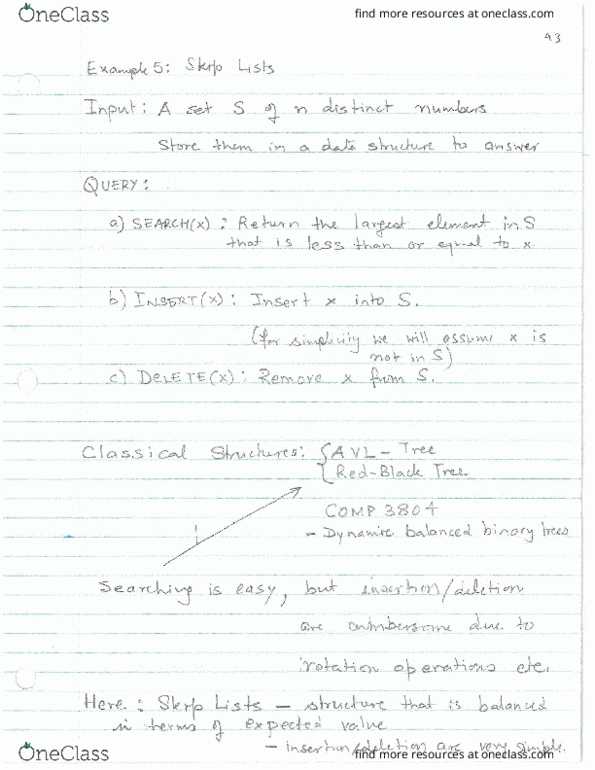 OneClass
find more resources at oneclass.com
43
Example 5: Skip Lists
Input: A set S of n distinct numbers
Store them in a data structure to answer
QUERY:
a) SEARCH(x): Return the largest element in S
that is less than or equal to x.
b) INSERT(x): Insert x into S.
(for simplicity we will assume x is
not in S)
c) DELETE(x): Remove x from S.
Classical Structures: { AVL - Tree
{ Red-Black Tree
COMP 3804
- Dynamic balanced binary trees
Searching is easy, but insertion/deletion
are cumbersome due to
rotation operations etc.
Here: Skip Lists - structure that is balanced
in terms of expected value
- insertion/deletion are very simple.
OneClass
find more resources at oneclass.com